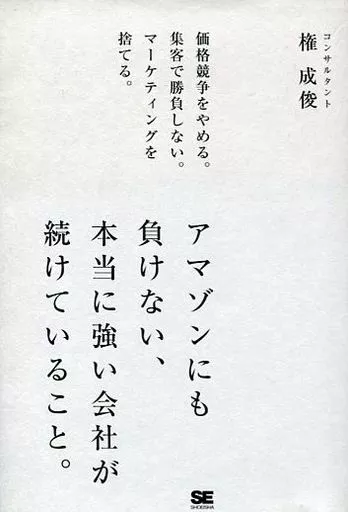 コンサルタント
権 成俊
価格競争をやめる。
集客で勝負しない。
マーケティングを
捨てる。
アマゾンにも
負けない、
本当に強い会社が
続けていること。
SE
SHOEISHA